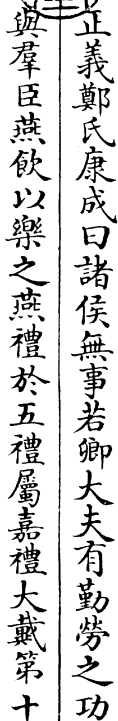 正義鄭氏康成曰諸侯無事若卿大夫有勤勞之功
與羣臣燕飲以樂之燕禮於五禮屬嘉禮大戴第十